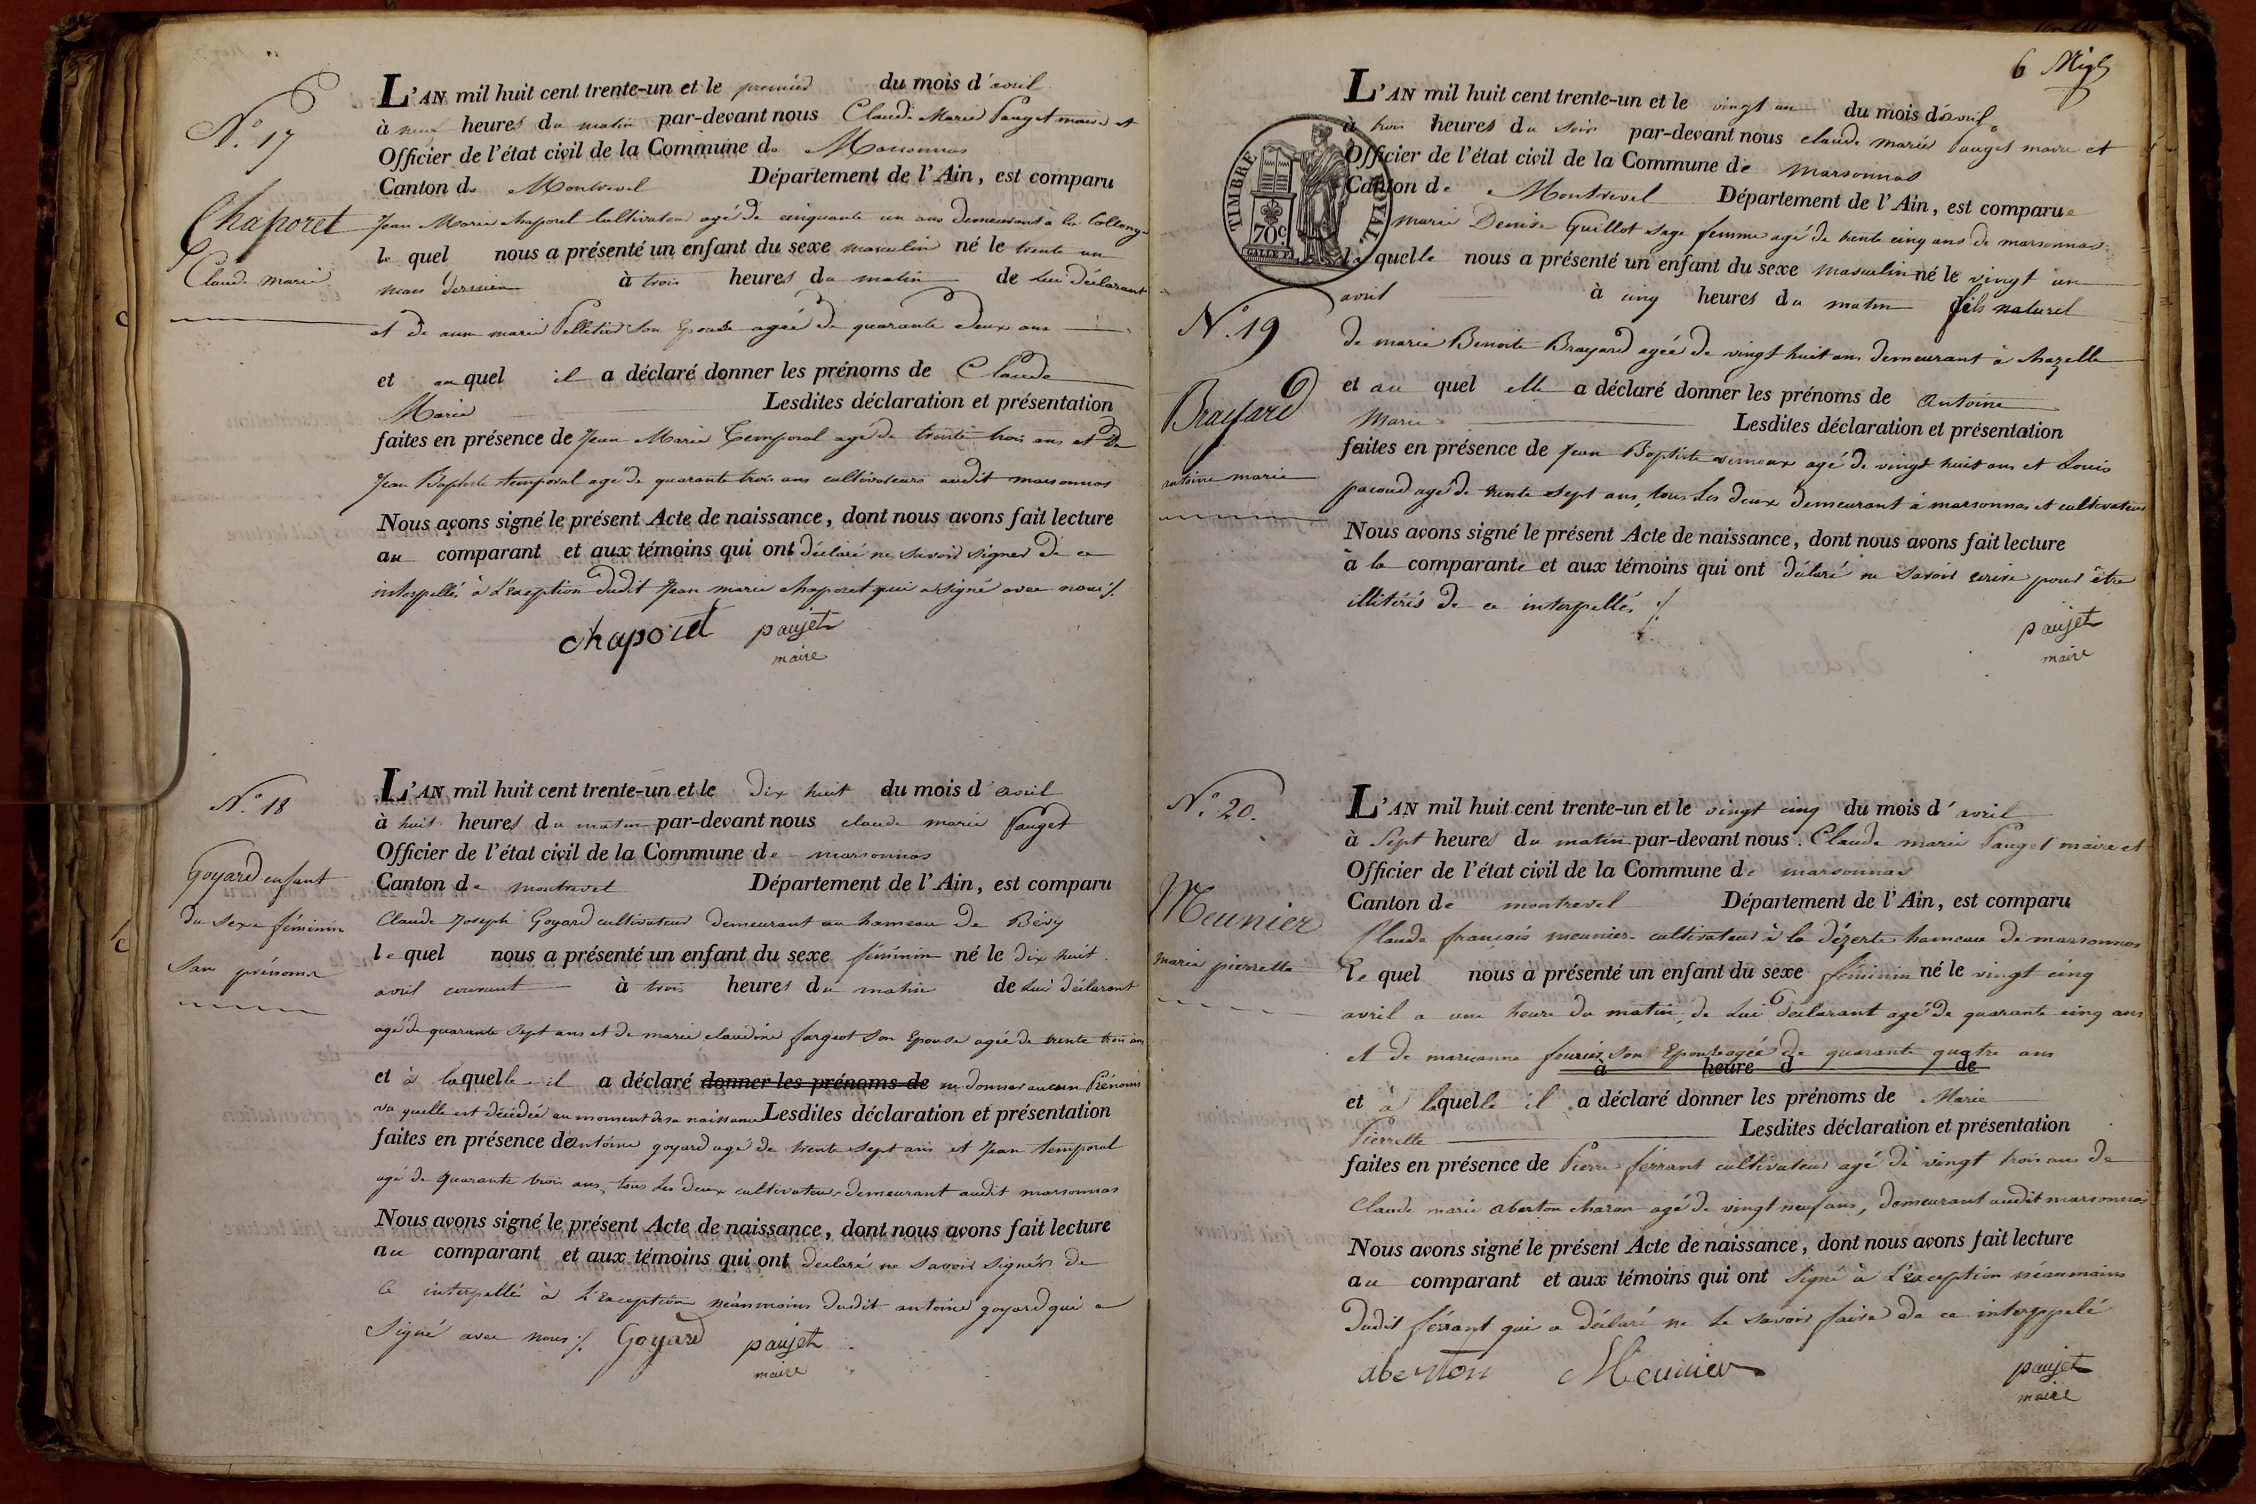 N.° 17
Chaporet
Claude marie
L'AN mil huit cent trente-un et le premier du mois d'avril
à neuf heures du matin par-devant nous Claude Marie Pauget maire et
Officier de l'état civil de la Commune de Marsonnas
Canton de Montrevel Département de l'Ain, est comparu
Jean Marie chaporet Cultivateur agé de cinquante un ans demeurant à la Collonge
le quel nous a présenté un enfant du sexe masculin né le trente un
mars dernier à trois heures du matin de Lui déclarant
et de anne marie Pelletier son Epouse agée de quarante deux ans
et auquel il a déclaré donner les prénoms de Claude
Marie Lesdites déclaration et présentation
faites en présence de Jean Marie Temporal agé de trente trois ans et de
Jean Baptiste temporal agé de quarante trois ans cultivateurs audit marsonnas
Nous avons signé le présent Acte de naissance, dont nous avons fait lecture
au comparant et aux témoins qui ont déclaré ne savoir signer de ce
interpellés à L'exception dudit Jean marie chaporet qui a signé avec nous ./.
chaporet paujet
maire
N.° 18
Goyard enfant
du sexe féminin
sans prénoms
L'AN mil huit cent trente-un et le dix huit du mois d'avril
à huit heures du matin par-devant nous claude marie Pauget
Officier de l'état civil de la Commune de marsonnas
Canton de montrevel Département de l'Ain, est comparu
Claude Joseph Goyard cultivateur demeurant au hameau de Bévy
le quel nous a présenté un enfant du sexe féminin né le dix huit
avril courant à trois heures du matin de Lui déclarant
agé de quarante sept ans et de marie claudine fargeot son Epouse agée de trente trois ans
et à laquelle il a déclaré donner les prénoms de ne donner aucun Prénoms
vu quelle est décédée au moment de sa naissance Lesdites déclaration et présentation
faites en présence de antoine goyard agé de trente sept ans et Jean temporal
agé de quarante trois ans, tous Les deux cultivateurs demeurant audit marsonnas
Nous avons signé le présent Acte de naissance, dont nous avons fait lecture
au comparant et aux témoins qui ont declaré ne savoir signer de
ce interpellés à L'exception néanmoins dudit antoine goyard qui a
signé avec nous ./. Goyard paujet
maire
6
L'AN mil huit cent trente-un et le vingt un du mois d'avril
à trois heures du soir par-devant nous claude marie Pauget maire et
Officier de l'état civil de la Commune de marsonnas
Canton de Montrevel Département de l'Ain, est comparue
marie Denise Guillot sage femme agé de trente cinq ans de marsonnas
la quelle nous a présenté un enfant du sexe masculin né le vingt un
avril à cinq heures du matin fils naturel
de marie Benoite Brayard agée de vingt huit ans demeurant à chazelle
et au quel elle a déclaré donner les prénoms de antoine
Marie Lesdites déclaration et présentation
faites en présence de Jean Baptiste agé de vingt huit ans et Louis
pacoud agé de trente sept ans, tous Les deux demeurant à marsonnas et cultivateurs
Nous avons signé le présent Acte de naissance, dont nous avons fait lecture
à la comparante et aux témoins qui ont déclaré ne savoir écrire pour être
illitérés de ce interpellés ./.
paujet
maire
TIMBRE ROYAL
70c
N.° 19
Brayard
antoine marie
N.° 20.
Meunier
marie pierrette
L'AN mil huit cent trente-un et le vingt cinq du mois d'avril
à Sept heures du matin par-devant nous Claude marie Pauget maire et
Officier de l'état civil de la Commune de marsonnas
Canton de montrevel Département de l'Ain, est comparu
Claude françois meunier cultivateur à la dézerte hameau de marsonnas
le quel nous a présenté un enfant du sexe féminin né le vingt cinq
avril a une heure du matin, de Lui declarant agé de quarante cinq ans
et de marieanne son Epouse agée de quarante quatre ans
a heure d de
et à laquelle il a déclaré donner les prénoms de Marie
Pierrette Lesdites déclaration et présentation
faites en présence de Pierre ferrant cultivateur agé de vingt trois ans de
Claude marie aberton charon agé de vingt neuf ans, demeurant audit marsonnas
Nous avons signé le présent Acte de naissance, dont nous avons fait lecture
au comparant et aux témoins qui ont signé à L'exception néanmoins
dudit férrant qui a déclaré ne Le savoir faire de ce interppelé
aberton Meunier paujet
maire